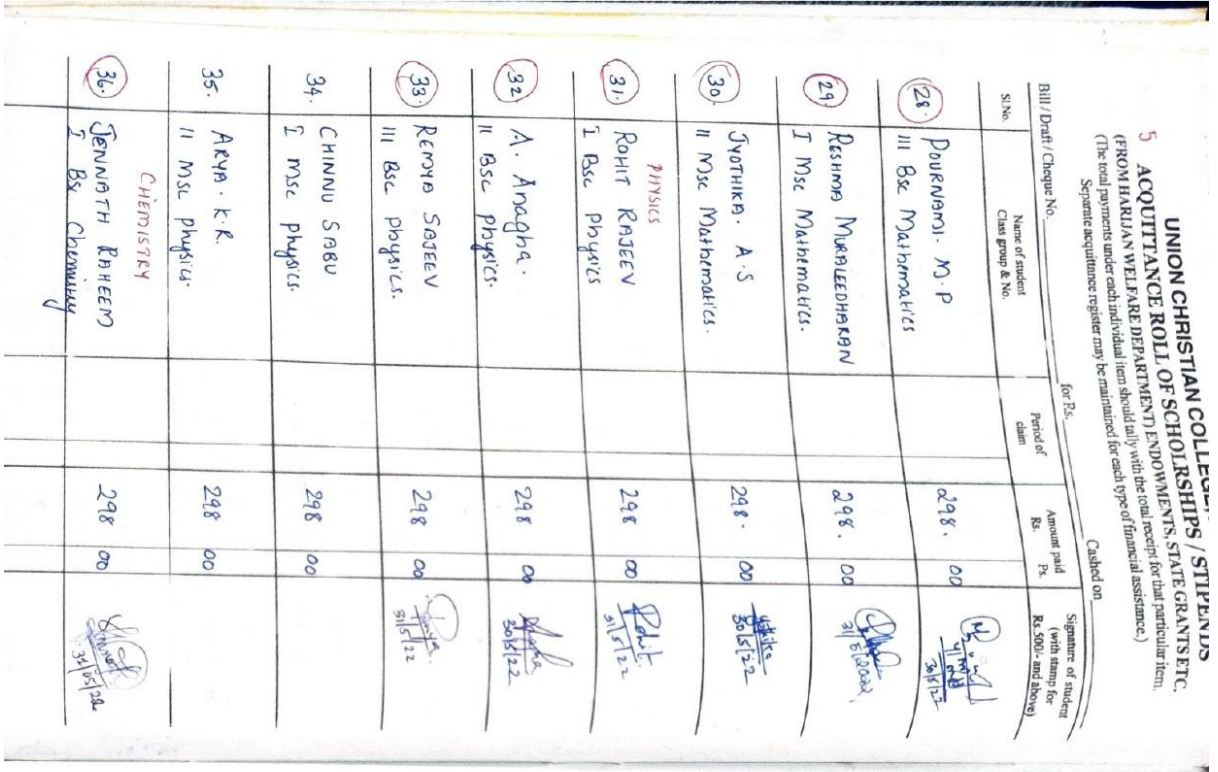 UNION CHRISTIAN COLLEGE,
5 ACQUITTANCE ROLL OF SCHOLRSHIPS / STIPENDS
(FROM HARIJAN WELFARE DEPARTMENT) ENDOWMENTS, STATE GRANTS ETC.
(The total payments under each individual item should tally with the total receipt for that particular item.
Separate acquittance register may be maintained for each type of financial assistance.)
Bill / Draft / Cheque No. for Rs. Cashed on
Sl.No. Name of student Class group & No. Period of claim Amount paid Rs. Ps. Signature of student (with stamp for Rs.500/- and above)
28. POURNAMI. M.P 298. 00
III Bsc Mathematics 30/5/22
29 RESHMA MURALEEDHARAN 298. 00
I Msc Mathematics. 31/5/2022
30. JYOTHIKA. A.S 298. 00
II Msc Mathematics. 30/5/22
PHYSICS
31. ROHIT RAJEEV 298 00 Rohit.
I Bsc Physics 31/5/22
32. A. Anagha. 298 00
II Bsc Physics. 30/5/22
33. REMYA SAJEEV 298 00
III Bsc Physics. 31/5/22
34. CHINNU SABU 298 00
I Msc Physics.
35. ARYA. K.R. 298 00
II Msc Physics.
CHEMISTRY
36. JENNATH RAHEEM 298 00
I Bsc Chemistry 31/05/22